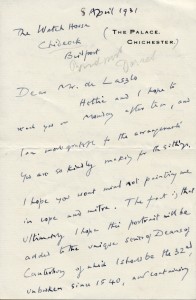 8 April 1931
The Watch House
Chideock
Bridport
Dorset
( THE PALACE,
CHICHESTER. )
Dear Mr. de Laszlo
Hettie and I hope to
reach you on Monday after tea, and
I am most grateful to the arrangements
you are so kindly making for the sittings.
I hope you wont mind not painting me
in cope and mitre. The fact is that
ultimately I hope this portrait will be
added to the unique series of Deans of
Canterbury of which I should be the 32nd,
unbroken since 1540, and containing